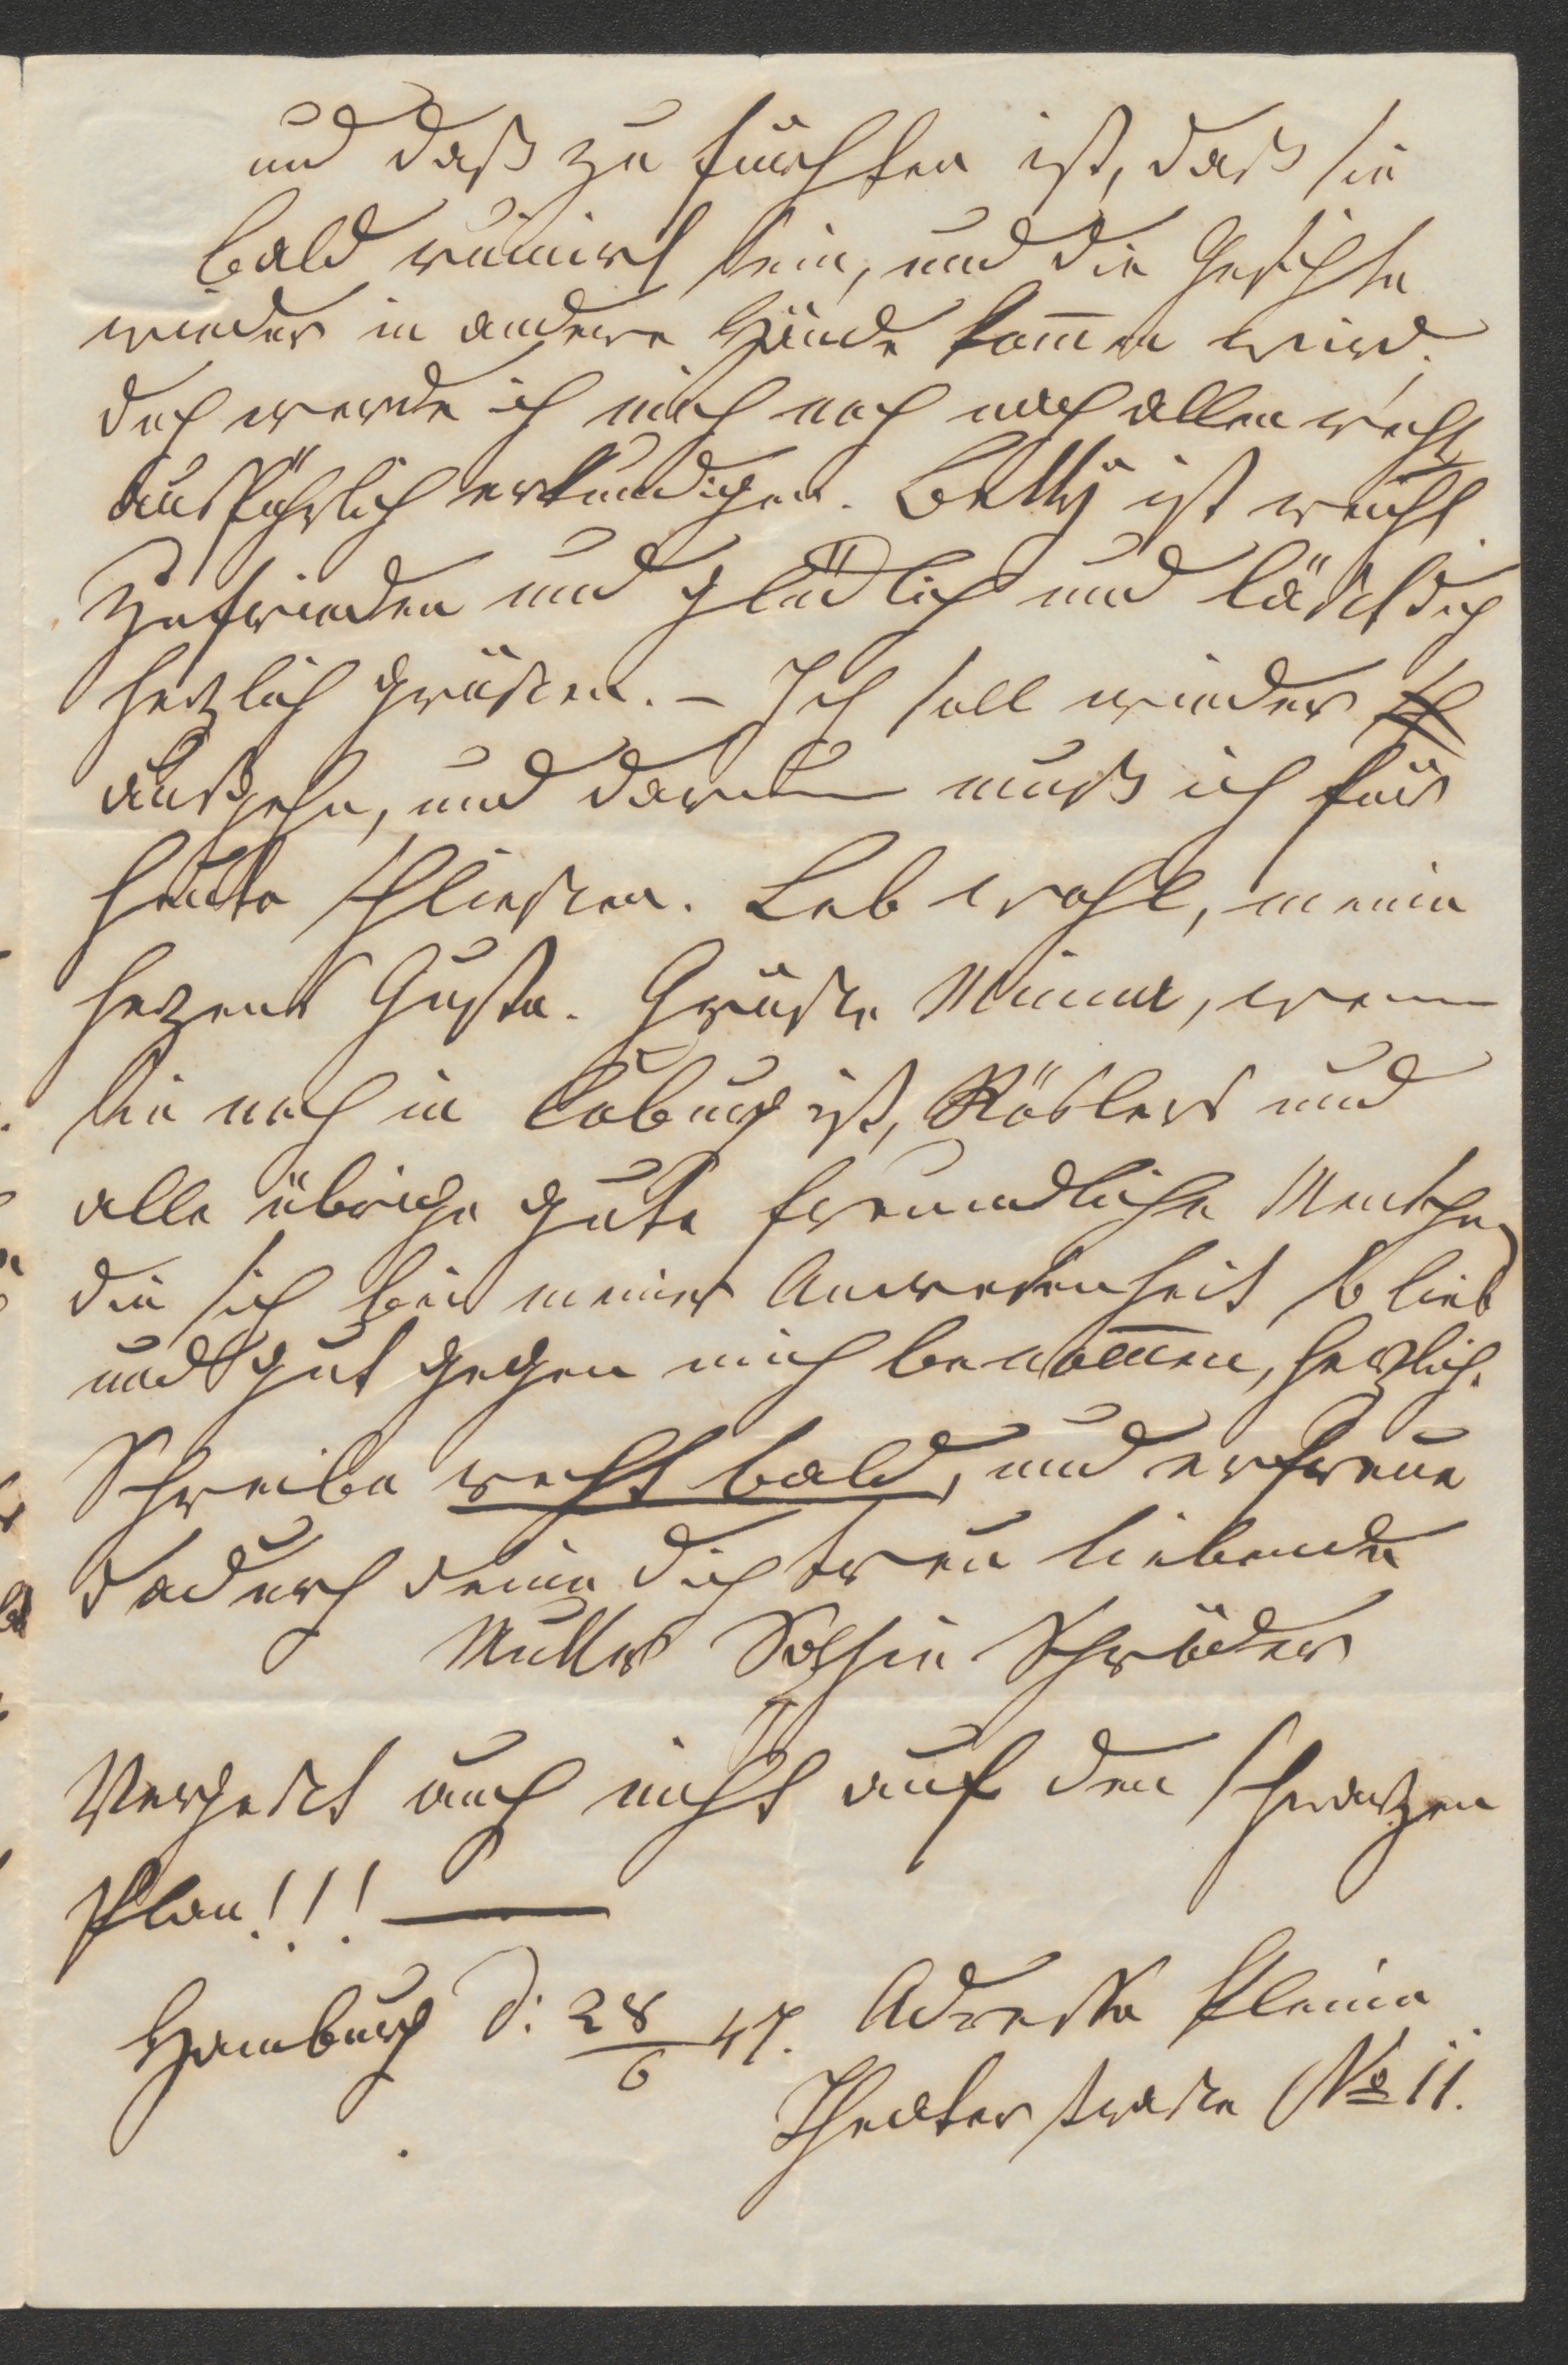 und daß zu fürchten ist, daß sie
bald ruinirt sein, und die Geschichte
wieder in andere Hände kom̄en wird.
doch werde ich mich noch nach allen recht
ausführlich erkundigen. Betty ist recht
zufrieden und glücklich und lässt dich
herzlich grüssen. – Ich soll wieder
ausgehn, und darum muß ich für
heute schliessen. Leb wohl, mein
herzens Gusta. Grüsse Minna, wenn
sie noch in Coburg ist, Röslers und
alle übrige gute freundliche Menschen
die sich bei meiner Anwesenheit so lieb
und gut gegen mich benom̄en, herzlich.
Schreibe recht bald, und erfreue
dadurch deine dich treu liebende
Mutter Sophie Schröder
Vergesst auch nicht auf den schwarzen
Plan!!! —
Hamburg d: 28/6 47. Adresse kleine
Theaterstrasse No 11.